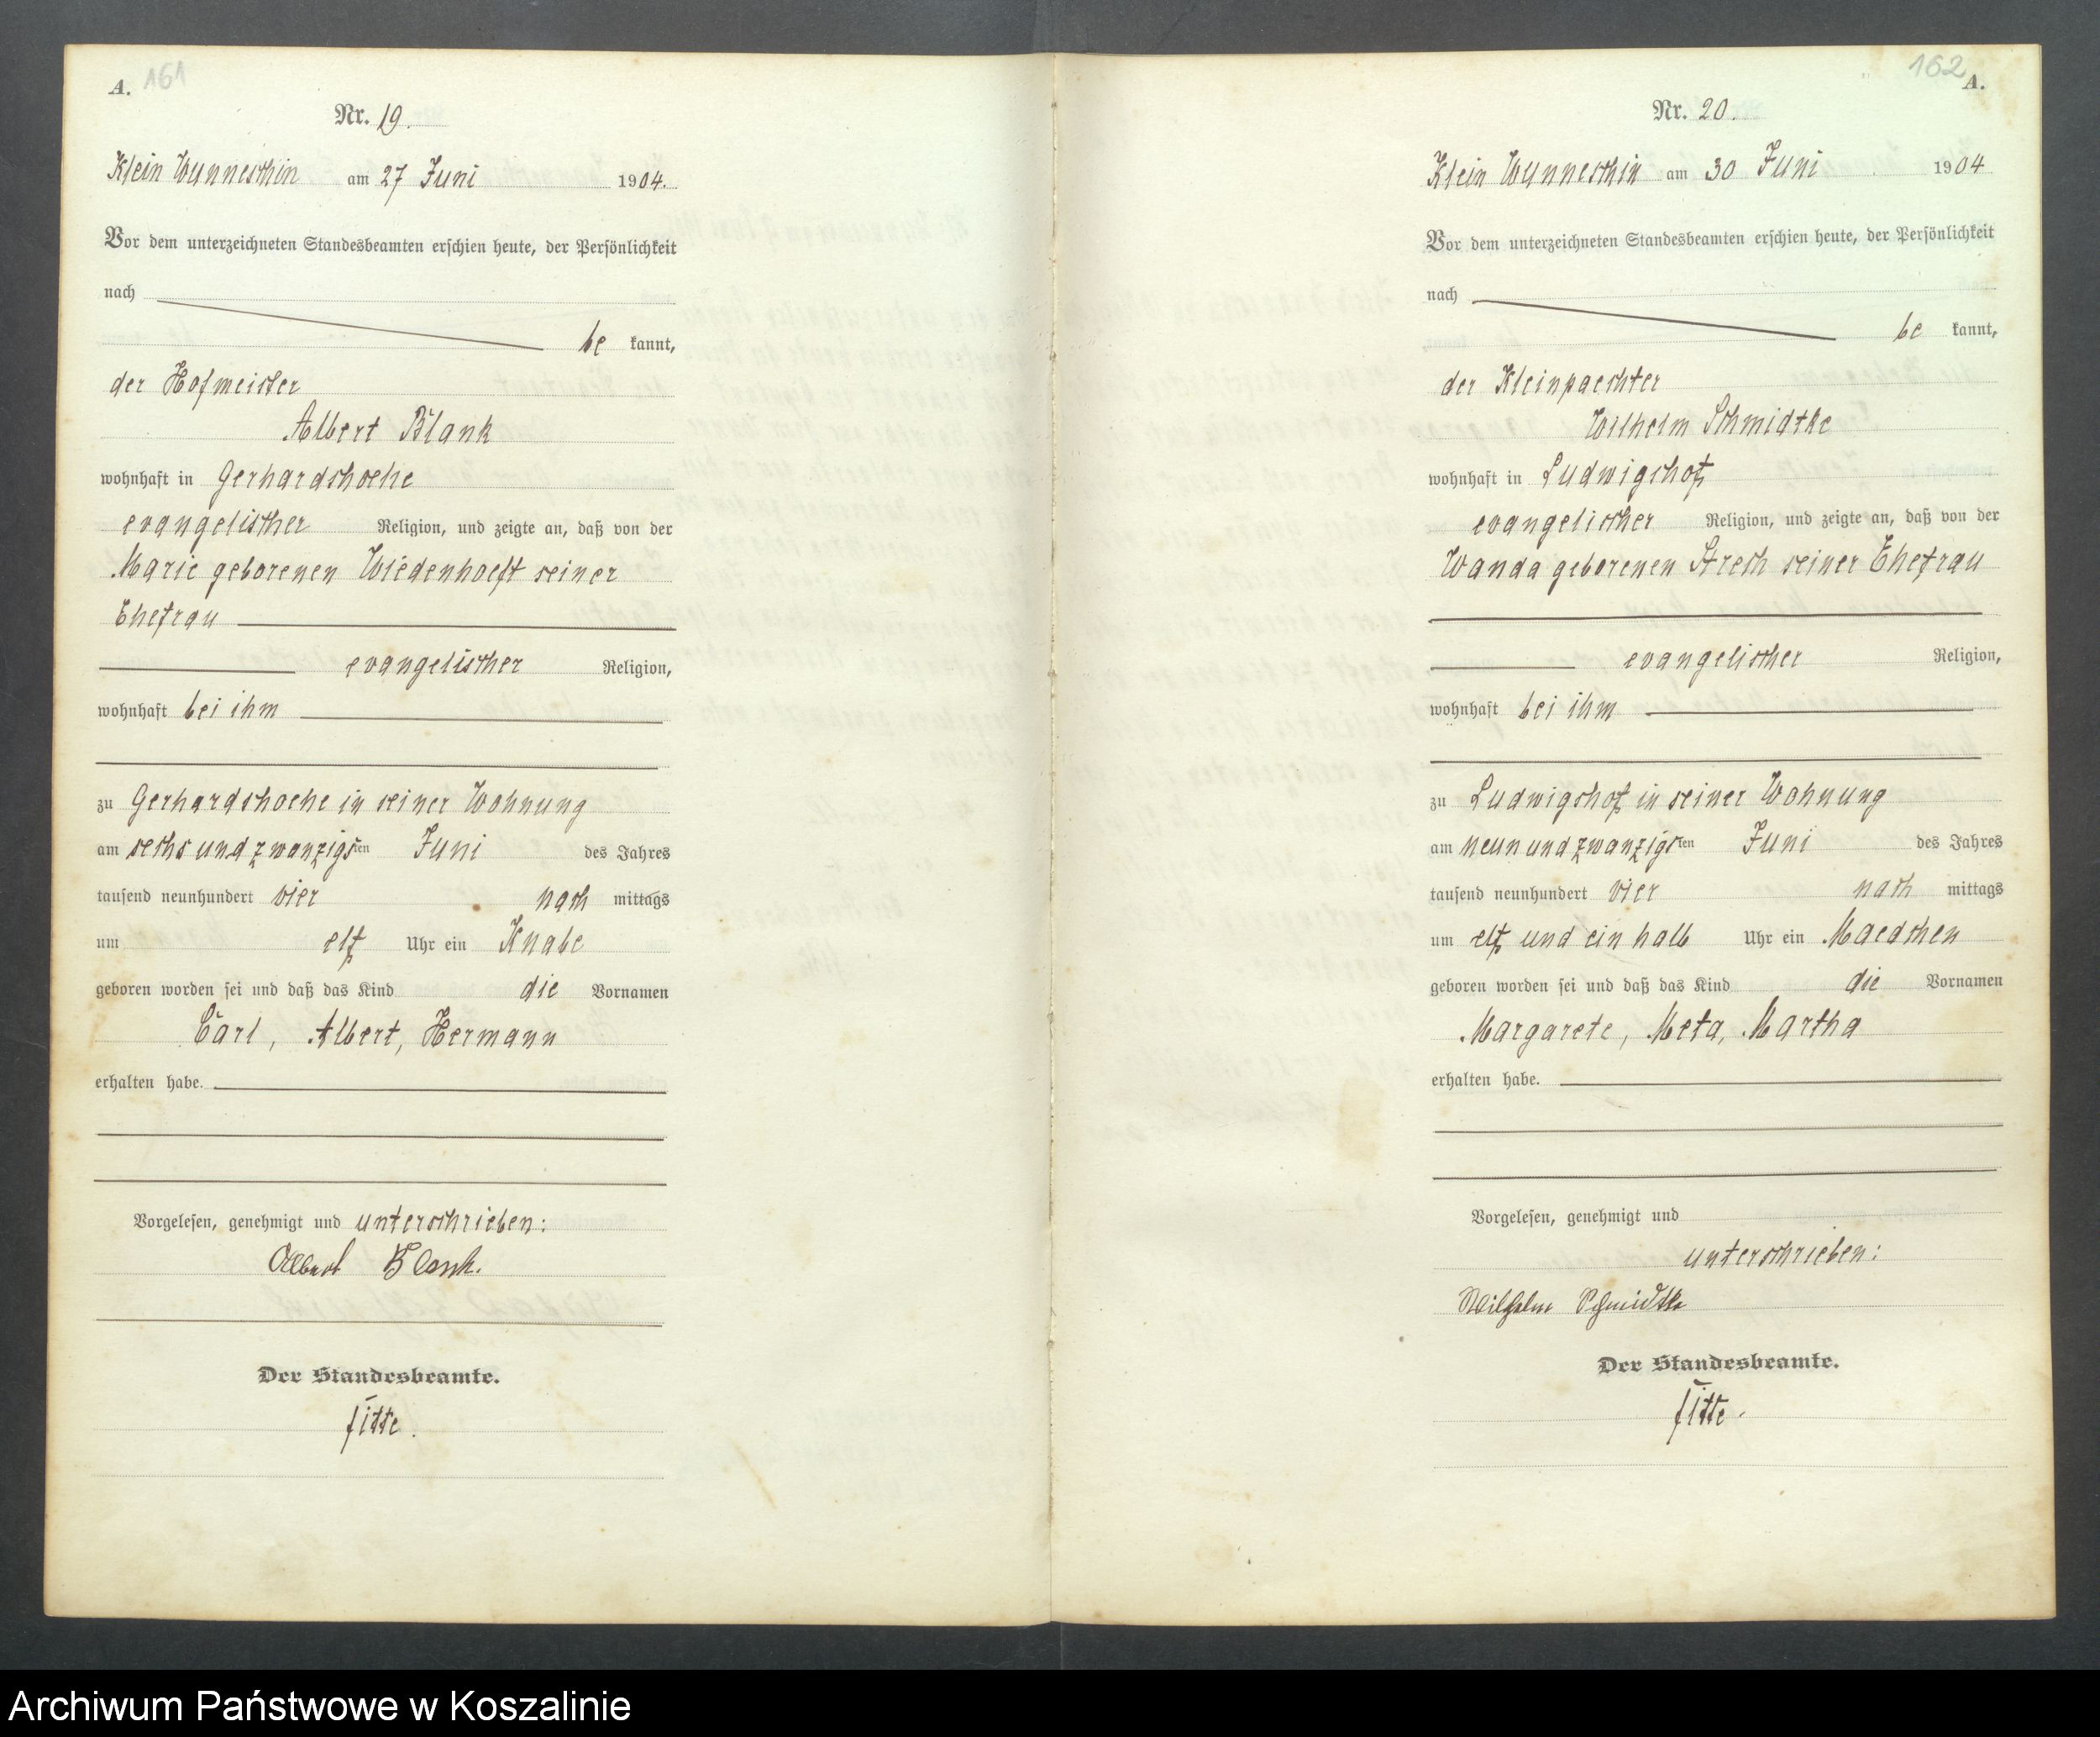 A. 161
Nr. 19.
Klein Wunneschin am 27 Juni 1904.
Vor dem unterzeichneten Standesbeamten erschien heute, der Persönlichkeit
nach
be kannt,
der Hofmeister
Albert Blank
wohnhaft in Gerhardshoehe
evangelischer Religion, und zeigte an, daß von der
Marie geborenen Wiedenhoeft seiner
Ehefrau
evangelischer Religion,
wohnhaft bei ihm
zu Gerhardshoehe in seiner Wohnung
am sechs und zwanzigsten Juni des Jahres
tausend neunhundert vier nach mittags
um elf Uhr ein Knabe
geboren worden sei und daß das Kind die Vornamen
Carl, Albert, Hermann
erhalten habe.
Vorgelesen, genehmigt und unterschrieben:
Albert Blank.
Der Standesbeamte.
Fitte.
162 A.
Nr. 20.
Klein Wunneschin am 30 Juni 1904
Vor dem unterzeichneten Standesbeamten erschien heute, der Persönlichkeit
nach
be kannt,
der Kleinpaechter
Wilhelm Schmidtke
wohnhaft in Ludwigshof
evangelischer Religion, und zeigte an, daß von der
Wanda geborenen Strech seiner Ehefrau
evangelischer Religion,
wohnhaft bei ihm
zu Ludwigshof in seiner Wohnung
am neun und zwanzigsten Juni des Jahres
tausend neunhundert vier nach mittags
um elf und ein halb Uhr ein Maedchen
geboren worden sei und daß das Kind die Vornamen
Margarete, Meta, Martha
erhalten habe.
Vorgelesen, genehmigt und
unterschrieben:
Wilhelm Schmidtke
Der Standesbeamte.
Fitte.
Archiwum Państwowe w Koszalinie